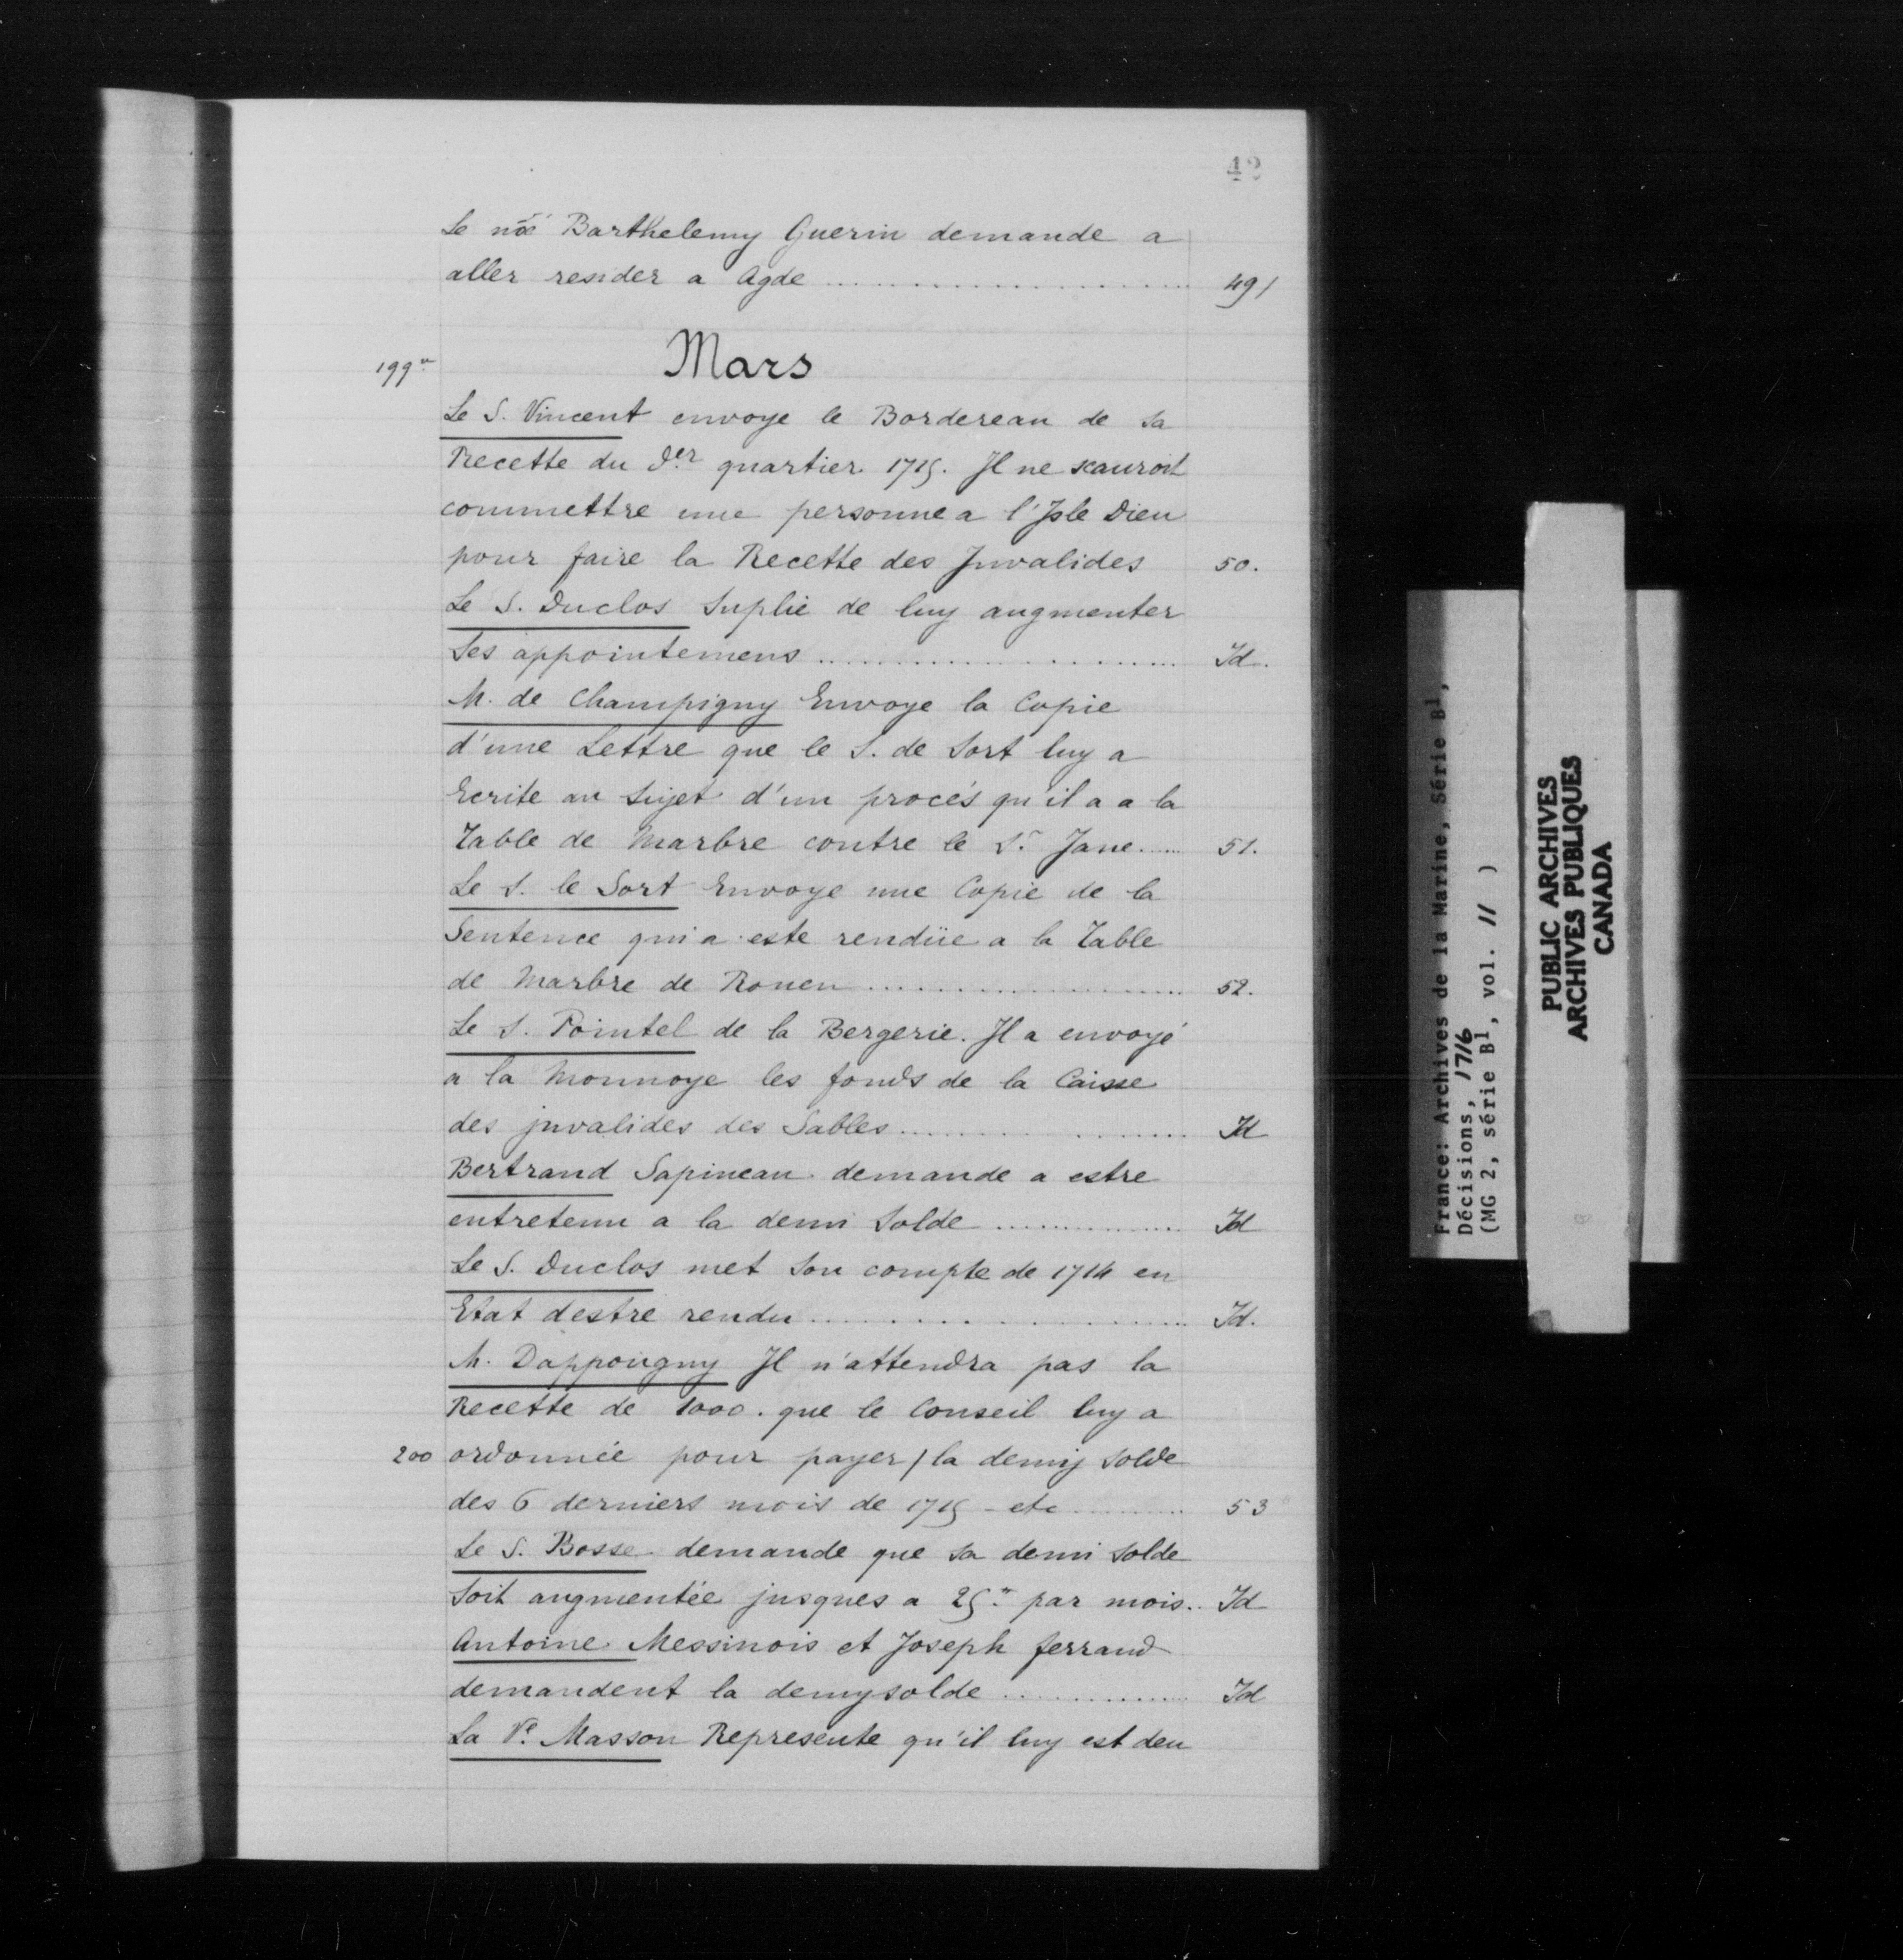 42
Le nõe Barthelemy Guerin demande a
aller resider a Agde .......... 49/
199 vo
Mars
Le S. Vincent envoye le Bordereau de sa
Recette du Der quartier 1715. Il ne scauroit
commettre une personne a l'Isle Dieu
pour faire la Recette des Invalides 50.
Le S. Duclos Suplie de luy augmenter
Ses appointemens .......... Id.
M. de Champigny Envoye la Copie
d'une Lettre que le S. de Sort luy a
Ecrite au Sujet d'un procés qu'il a a la
Table de Marbre contre le Sr. Jane..... 51.
Le S. le Sort Envoye une Copie de la
Sentence qui a este rendüe a la Table
de Marbre de Rouen .......... 52.
Le S. Pointel de la Bergerie. Il a envoyé
a la Monnoye les fonds de la Caisse
des jnvalides des Sables .......... Id
Bertrand Sapineau demande a estre
entretenu a la demi Solde .......... Id
Le S. Duclos met Son compte de 1714 en
Etat destre rendu .......... Id.
M. Dappougny Il n'attendra pas la
Recette de 1000. que le Conseil luy a
200 ordonnée pour payer / la demy Solde
des 6 derniers mois de 1715 - etc .......... 53
Le S. Bosse demande que sa demi solde
Soit augmentée jusques a 25 par mois.. Id
Antoine Messinois et Joseph ferrand
demandent la demysolde .......... Id
La Ve. Masson Represente qu'il luy est deu
France: Archives de la Marine, Série B1,
Décisions, 1716
(MG 2, série B1, vol. 11 )
PUBLIC ARCHIVES
ARCHIVES PUBLIQUES
CANADA